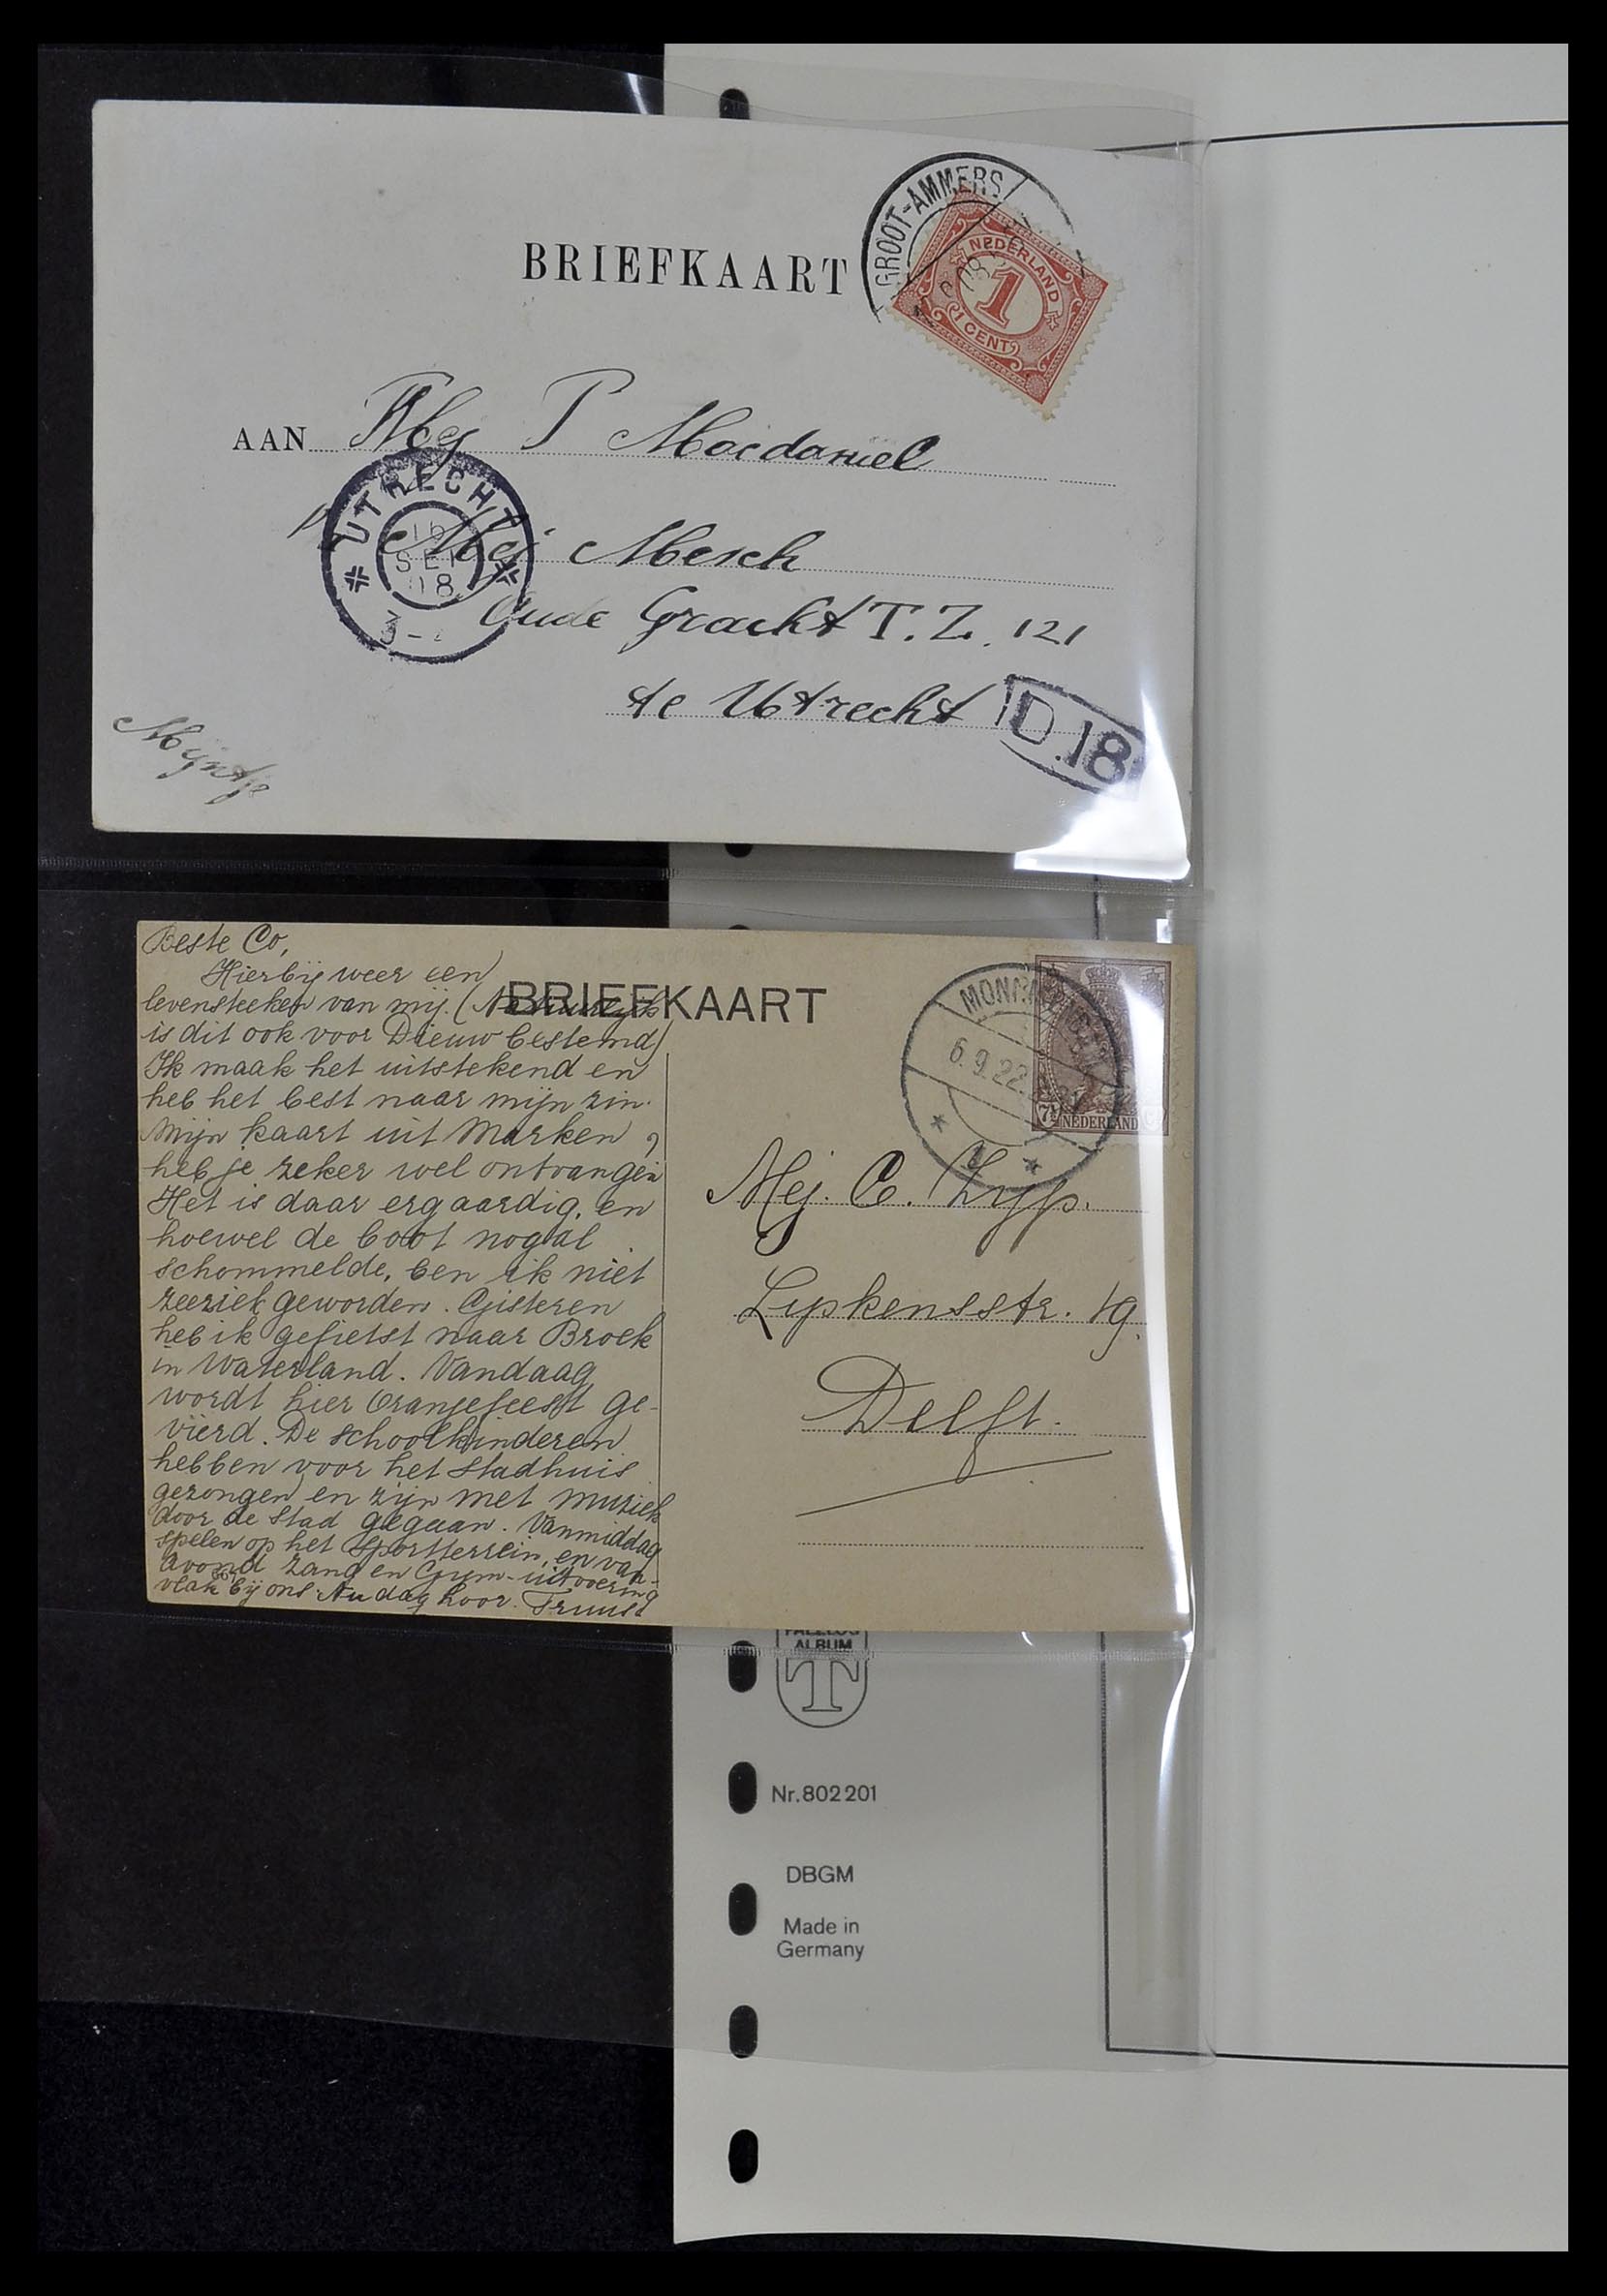 GROOT-AMMERS
NEDERLAND
1
1 CENT
BRIEFKAART
AAN Mej P Macdaniel
UTRECHT
SEP
08
Mej Mesch
Oude Gracht T.Z. 121
te Utrecht
D.18
Mijntje
Beste Co,
Hierbij weer een
levensteeken van mij. (Natuurlijk
is dit ook voor Dieuw bestemd)
Ik maak het uitstekend en
heb het best naar mijn zin.
Mijn kaart uit Marken,
heb je zeker wel ontvangen
Het is daar erg aardig, en
hoewel de boot nogal
schommelde, ben ik niet
zeeziek geworden. Gisteren
heb ik gefietst naar Broek
in Waterland. Vandaag
wordt hier Oranjefeest ge-
vierd. De schoolkinderen
hebben voor het stadhuis
gezongen en zijn met muziek
door de stad gegaan. Vanmiddag
spelen op het sportterrein, en van-
avond zang en Gym-uitvoering
vlak bij ons. Nu dag hoor. Truus
BRIEFKAART
6.9.22
7½
NEDERLAND
Mej. C. Zijp.
Lipkensstr. 19.
Delft.
ALBUM
T
Nr. 802 201
DBGM
Made in
Germany